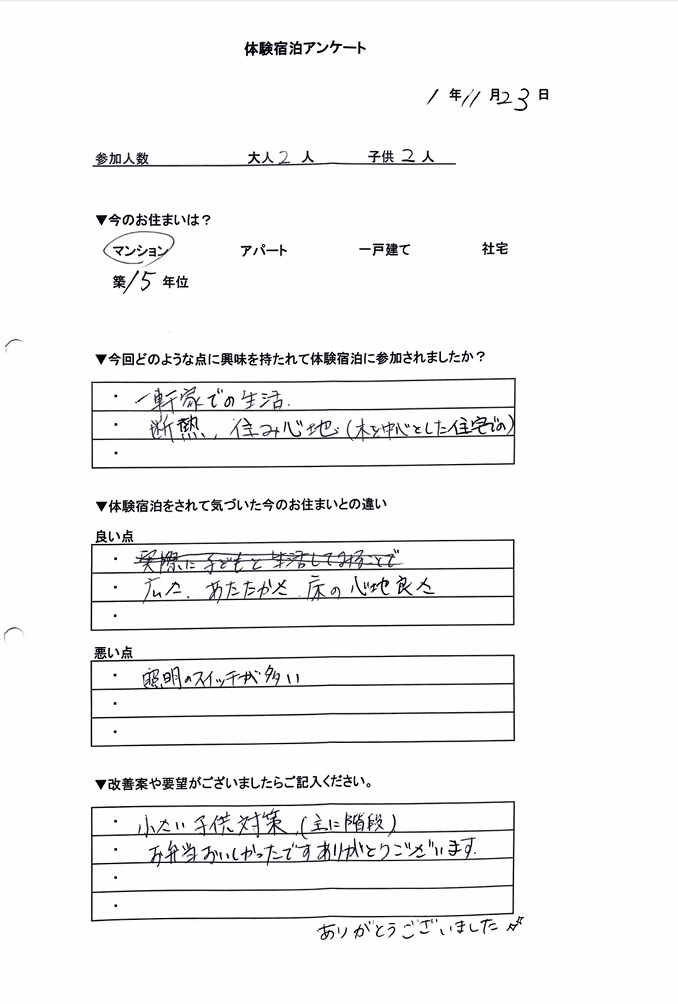 体験宿泊アンケート
1 年 11 月 23 日
参加人数 大人 2 人 子供 2 人
▼今のお住まいは？
マンション アパート 一戸建て 社宅
築 15 年位
▼今回どのような点に興味を持たれて体験宿泊に参加されましたか？
・ 一軒家での生活.
・ 断熱、住み心地(木を中心とした住宅での)
・
▼体験宿泊をされて気づいた今のお住まいとの違い
良い点
・ 実際に子どもと生活してみることで
・ 広さ、あたたかさ、床の心地良さ
・
悪い点
・ 照明のスイッチが多い
・
・
▼改善案や要望がございましたらご記入ください。
・ 小さい子供対策、(主に階段)
・ お弁当おいしかったですありがとうございます.
・
・
ありがとうございました